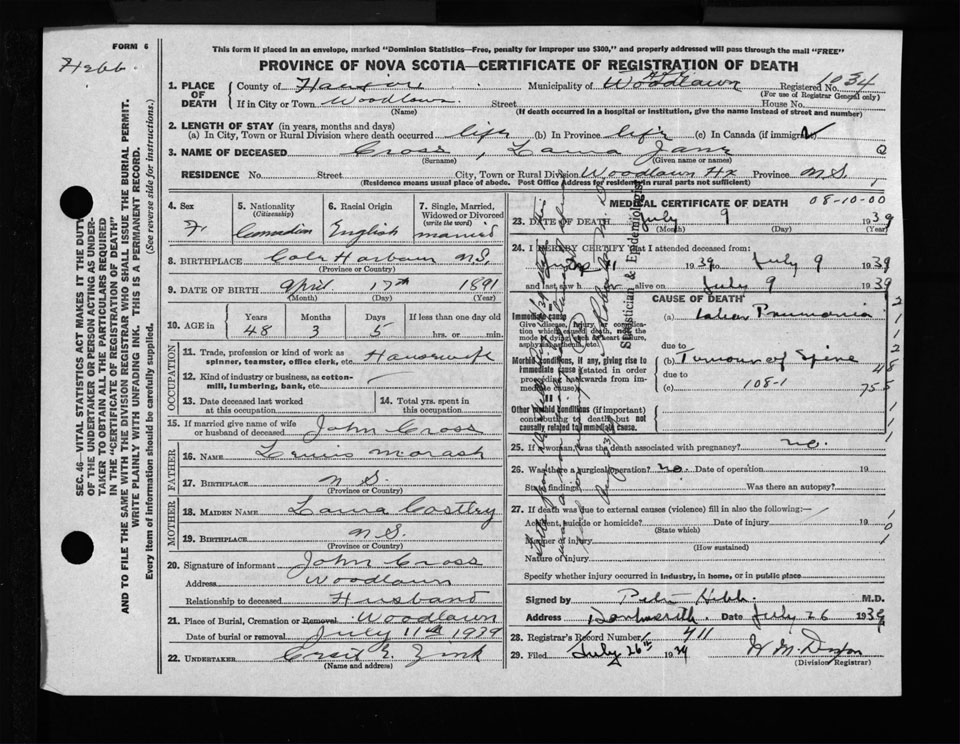 FORM 6
Hebb.
This form if placed in an envelope, marked "Dominion Statistics—Free, penalty for improper use $300," and properly addressed will pass through the mail "FREE"
PROVINCE OF NOVA SCOTIA—CERTIFICATE OF REGISTRATION OF DEATH
SEC. 46—VITAL STATISTICS ACT MAKES IT THE DUTY
OF THE UNDERTAKER OR PERSON ACTING AS UNDER-
TAKER TO OBTAIN ALL THE PARTICULARS REQUIRED
IN THE "CERTIFICATE OF REGISTRATION OF DEATH"
AND TO FILE THE SAME WITH THE DIVISION REGISTRAR WHO SHALL ISSUE THE BURIAL PERMIT.
WRITE PLAINLY WITH UNFADING INK. THIS IS A PERMANENT RECORD.
Every item of information should be carefully supplied. (See reverse side for instructions.)
1. PLACE OF DEATH County of Halifax Municipality of Woodlawn Registered No. 1034
(For use of Registrar General only)
If in City or Town Woodlawn Street House No.
(Name) (If death occurred in a hospital or institution, give the name instead of street and number)
2. LENGTH OF STAY (in years, months and days)
(a) In City, Town or Rural Division where death occurred life (b) In Province life (c) In Canada (if immigrant)
3. NAME OF DECEASED Cross, Laura Jane
(Surname) (Given name or names)
RESIDENCE No. Street City, Town or Rural Division Woodlawn Hx Province N.S.
(Residence means usual place of abode. Post Office Address for residents in rural parts not sufficient)
4. Sex F.
5. Nationality (Citizenship) Canadian
6. Racial Origin English
7. Single, Married, Widowed or Divorced (write the word) married
8. BIRTHPLACE Cole Harbour N.S.
(Province or Country)
9. DATE OF BIRTH April 17th 1891
(Month) (Day) (Year)
10. AGE in Years Months Days If less than one day old
48 3 5 hrs. or min.
OCCUPATION
11. Trade, profession or kind of work as spinner, teamster, office clerk, etc. Housewife
12. Kind of industry or business, as cotton-mill, lumbering, bank, etc.
13. Date deceased last worked at this occupation
14. Total yrs. spent in this occupation
15. If married give name of wife or husband of deceased John Cross
FATHER
16. NAME Lewis Morash
17. BIRTHPLACE N S.
(Province or Country)
MOTHER
18. MAIDEN NAME Laura
19. BIRTHPLACE N.S.
(Province or Country)
20. Signature of informant John Cross
Address Woodlawn
Relationship to deceased Husband
21. Place of Burial, Cremation or Removal Woodlawn
Date of burial or removal July 11th 1939
22. UNDERTAKER Zink
(Name and address)
MEDICAL CERTIFICATE OF DEATH 08-10-00
23. DATE OF DEATH July 9 1939
(Month) (Day) (Year)
24. I HEREBY CERTIFY that I attended deceased from:
1939 to July 9 1939
and last saw h alive on July 9 1939
CAUSE OF DEATH
Immediate cause
Give disease, injury or complication which caused death, not the mode of dying, such as heart failure, asphyxia, asthenia, etc.
(a) Lobar Pneumonia
due to
Morbid conditions, if any, giving rise to immediate cause (stated in order proceeding backwards from immediate cause)
(b) Tumour of Spine
due to
(c) 108-1
II
Other morbid conditions (if important) contributing to death but not causally related to immediate cause.
Statistician & Epidemiologist
25. If a woman, was the death associated with pregnancy? no.
26. Was there a surgical operation? no. Date of operation 19
State findings Was there an autopsy?
27. If death was due to external causes (violence) fill in also the following:—
Accident, suicide or homicide? Date of injury 19
(State which)
Manner of injury
(How sustained)
Nature of injury
Specify whether injury occurred in industry, in home, or in public place
Signed by Hebb M.D.
Address Dartmouth Date July 26 1939
28. Registrar's Record Number 411
29. Filed July 26th 1939
(Division Registrar)